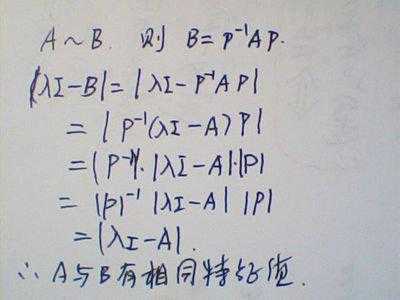 A∼B. 则 B=P⁻¹AP.
|λI-B|=|λI-P⁻¹AP|
=|P⁻¹(λI-A)P|
=|P⁻¹|·|λI-A|·|P|
=|P|⁻¹ |λI-A| |P|
=|λI-A|.
∴ A与B有相同特征值.